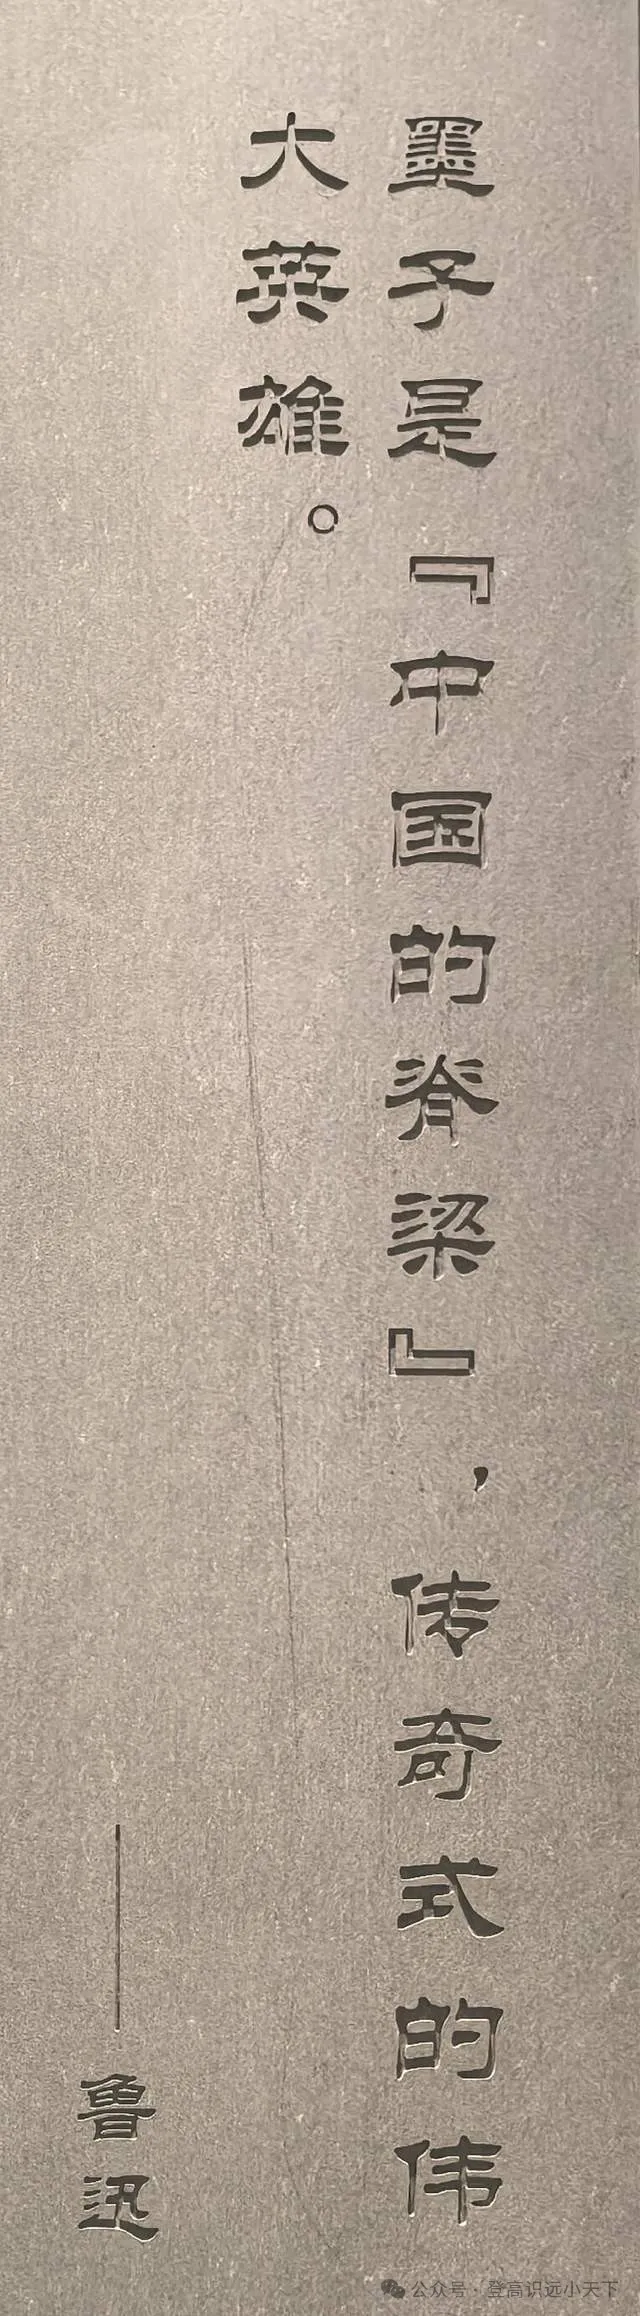 墨子是『中国的脊梁』，传奇式的伟
大英雄。
——鲁迅
公众号·登高识远小天下